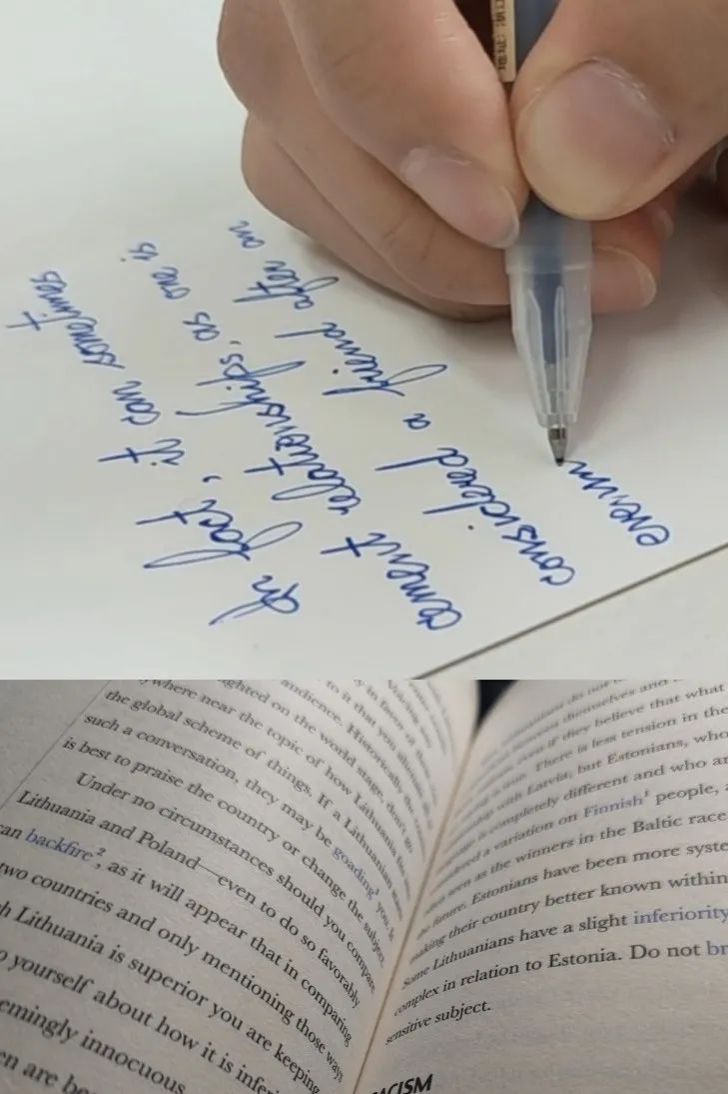 In fact, it can sometimes
cement relationships, as one is
considered a friend after an
evenin
audience. Historically the
ghted on the world stage, don't
where near the topic of how Lithuania
the global scheme of things. If a Lithuanian
such a conversation, they may be goading you. It
is best to praise the country or change the subject.
Under no circumstances should you compare
Lithuania and Poland—even to do so favorably
an backfire,² as it will appear that in comparing
two countries and only mentioning those ways
h Lithuania is superior you are keeping
o yourself about how it is infer
emingly innocuous
en are be
themselves and
even if they believe that what
a true. There is less tension in the
with Latvia, but Estonians, who
is completely different and who ar
a variation on Finnish¹ people,
seen as the winners in the Baltic race
future. Estonians have been more syste
making their country better known within
Some Lithuanians have a slight inferiority
complex in relation to Estonia. Do not br
sensitive subject.
ACISM